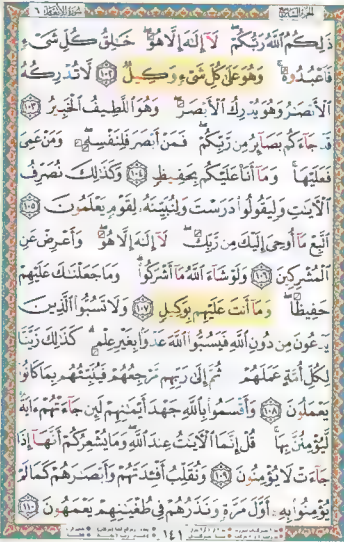 الجزء السابع سورة الأنعام ٦
ذَٰلِكُمُ ٱللَّهُ رَبُّكُمْ ۖ لَآ إِلَٰهَ إِلَّا هُوَ ۖ خَٰلِقُ كُلِّ شَىْءٍ
فَٱعْبُدُوهُ ۚ وَهُوَ عَلَىٰ كُلِّ شَىْءٍ وَكِيلٌ ١٠٢ لَّا تُدْرِكُهُ
ٱلْأَبْصَٰرُ وَهُوَ يُدْرِكُ ٱلْأَبْصَٰرَ ۖ وَهُوَ ٱللَّطِيفُ ٱلْخَبِيرُ ١٠٣
قَدْ جَآءَكُم بَصَآئِرُ مِن رَّبِّكُمْ ۖ فَمَنْ أَبْصَرَ فَلِنَفْسِهِۦ ۖ وَمَنْ عَمِىَ
فَعَلَيْهَا ۚ وَمَآ أَنَا۠ عَلَيْكُم بِحَفِيظٍ ١٠٤ وَكَذَٰلِكَ نُصَرِّفُ
ٱلْءَايَٰتِ وَلِيَقُولُوا۟ دَرَسْتَ وَلِنُبَيِّنَهُۥ لِقَوْمٍ يَعْلَمُونَ ١٠٥
ٱتَّبِعْ مَآ أُوحِىَ إِلَيْكَ مِن رَّبِّكَ ۖ لَآ إِلَٰهَ إِلَّا هُوَ ۖ وَأَعْرِضْ عَنِ
ٱلْمُشْرِكِينَ ١٠٦ وَلَوْ شَآءَ ٱللَّهُ مَآ أَشْرَكُوا۟ ۗ وَمَا جَعَلْنَٰكَ عَلَيْهِمْ
حَفِيظًا ۖ وَمَآ أَنتَ عَلَيْهِم بِوَكِيلٍ ١٠٧ وَلَا تَسُبُّوا۟ ٱلَّذِينَ
يَدْعُونَ مِن دُونِ ٱللَّهِ فَيَسُبُّوا۟ ٱللَّهَ عَدْوًۢا بِغَيْرِ عِلْمٍ ۗ كَذَٰلِكَ زَيَّنَّا
لِكُلِّ أُمَّةٍ عَمَلَهُمْ ثُمَّ إِلَىٰ رَبِّهِم مَّرْجِعُهُمْ فَيُنَبِّئُهُم بِمَا كَانُوا۟
يَعْمَلُونَ ١٠٨ وَأَقْسَمُوا۟ بِٱللَّهِ جَهْدَ أَيْمَٰنِهِمْ لَئِن جَآءَتْهُمْ ءَايَةٌ
لَّيُؤْمِنُنَّ بِهَا ۚ قُلْ إِنَّمَا ٱلْءَايَٰتُ عِندَ ٱللَّهِ ۖ وَمَا يُشْعِرُكُمْ أَنَّهَآ إِذَا
جَآءَتْ لَا يُؤْمِنُونَ ١٠٩ وَنُقَلِّبُ أَفْـِٔدَتَهُمْ وَأَبْصَٰرَهُمْ كَمَا لَمْ
يُؤْمِنُوا۟ بِهِۦٓ أَوَّلَ مَرَّةٍ وَنَذَرُهُمْ فِى طُغْيَٰنِهِمْ يَعْمَهُونَ ١١٠
١٤١